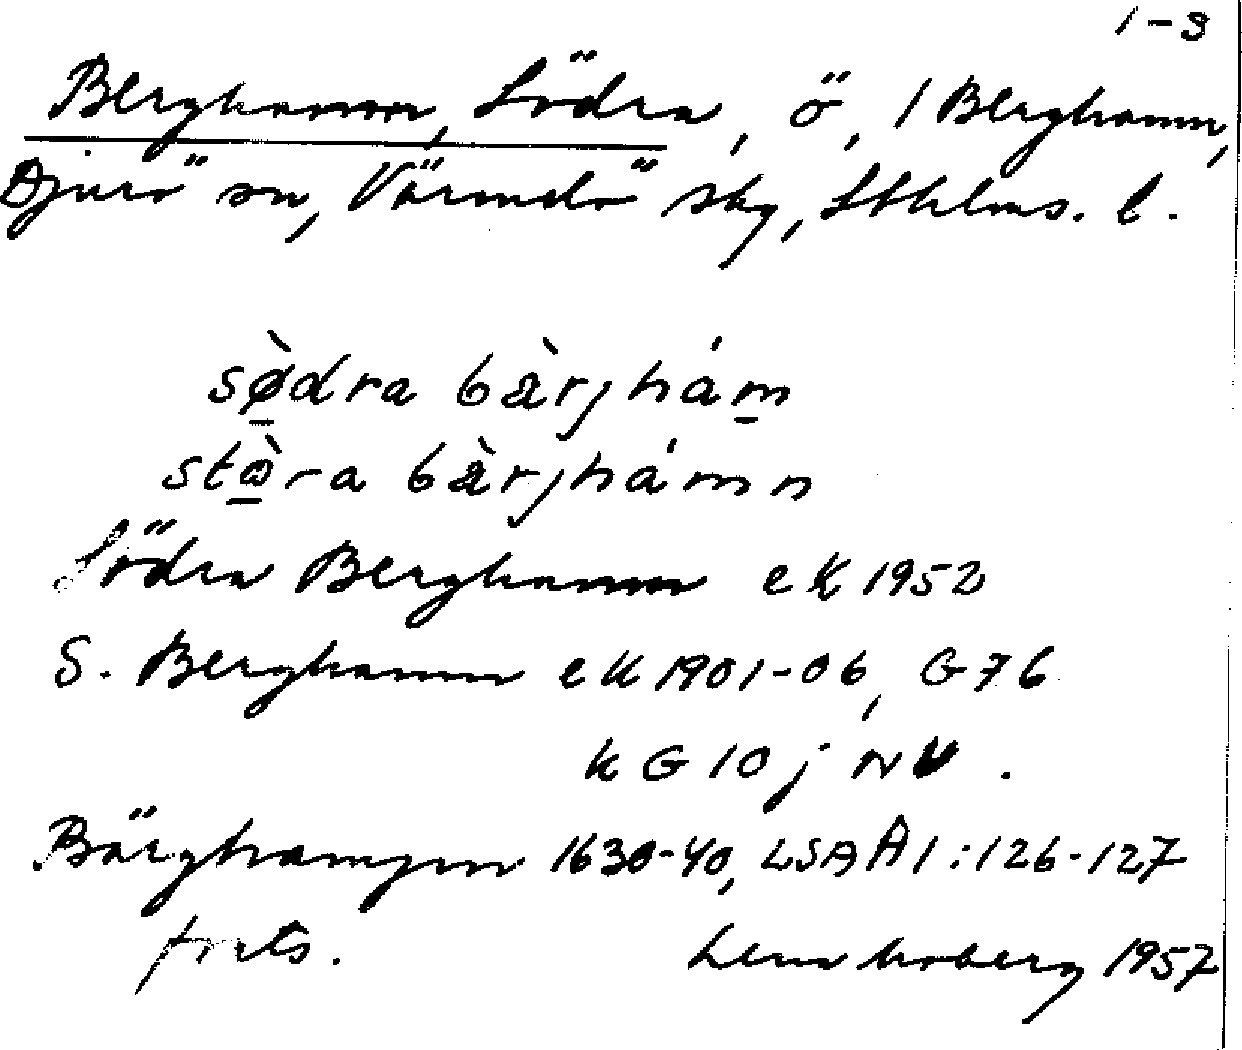 1-3
Berghamn, Södra, ö, i Berghamn,
Djurö sn, Värmdö skg, Sthlms. l.
sø̀dra bàrjhám
stò̱ra bàrjhámn
Södra Berghamn eK 1952
S. Berghamn eK 1901-06, G76
KG 10 j NV.
Bärghampn 1630-40, LSA A1:126-127
forts. Lena Moberg 1957